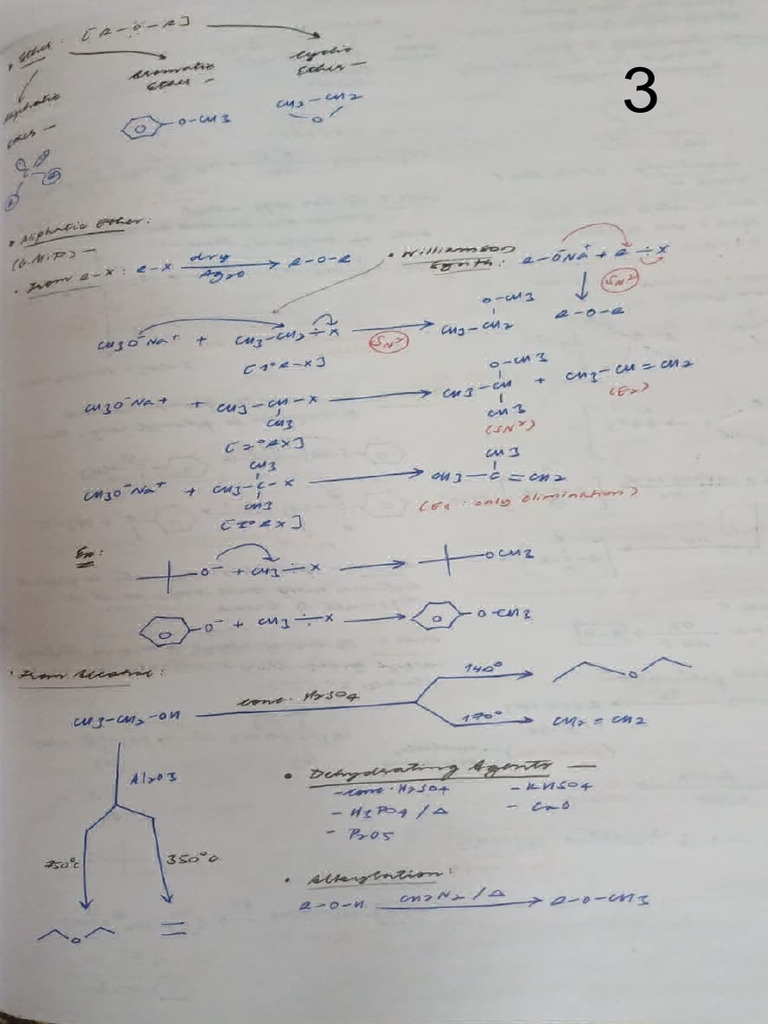 3
• Ether : [R-Ö-R]
Aliphatic Ether —
Aromatic Ether —
Cyclic Ether —
O-CH3
CH2-CH2
O
• Aliphatic Ether:
(G.M.P) —
• From R-X : R-X dry Ag2O → R-O-R
• Williamson Synth: R-O⁻Na⁺ + R÷X
(SN²)
R-O-R
CH3O⁻Na⁺ + CH3-CH2÷X (SN²) → CH3-CH2
O-CH3
[1° R-X]
CH3O⁻Na+ + CH3-CH-X → CH3-CH + CH3-CH=CH2
CH3
O-CH3
CH3
[2° RX]
(SN²)
(E2)
CH3O⁻Na⁺ + CH3-C-X → CH3-C=CH2
CH3
CH3
CH3
(E2 : only elimination)
Ex:
O⁻ + CH3÷X → OCH3
O⁻ + CH3÷X → O-CH3
• From Alcohol:
CH3-CH2-OH conc. H2SO4
140° → O
170° → CH2=CH2
Al2O3
250°c
350°c
O
• Dehydrating Agents —
- conc. H2SO4 - KHSO4
- H3PO4/Δ - CaO
- P2O5
• Alkylation:
R-O-H CH2N2/Δ → R-O-CH3